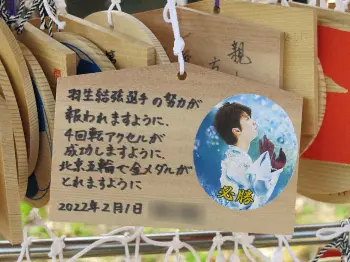 羽生結弦選手の努力が
報われますように、
4回転アクセルが
成功しますように、
北京五輪で金メダルが
とれますように
2022年2月1日
必勝
親